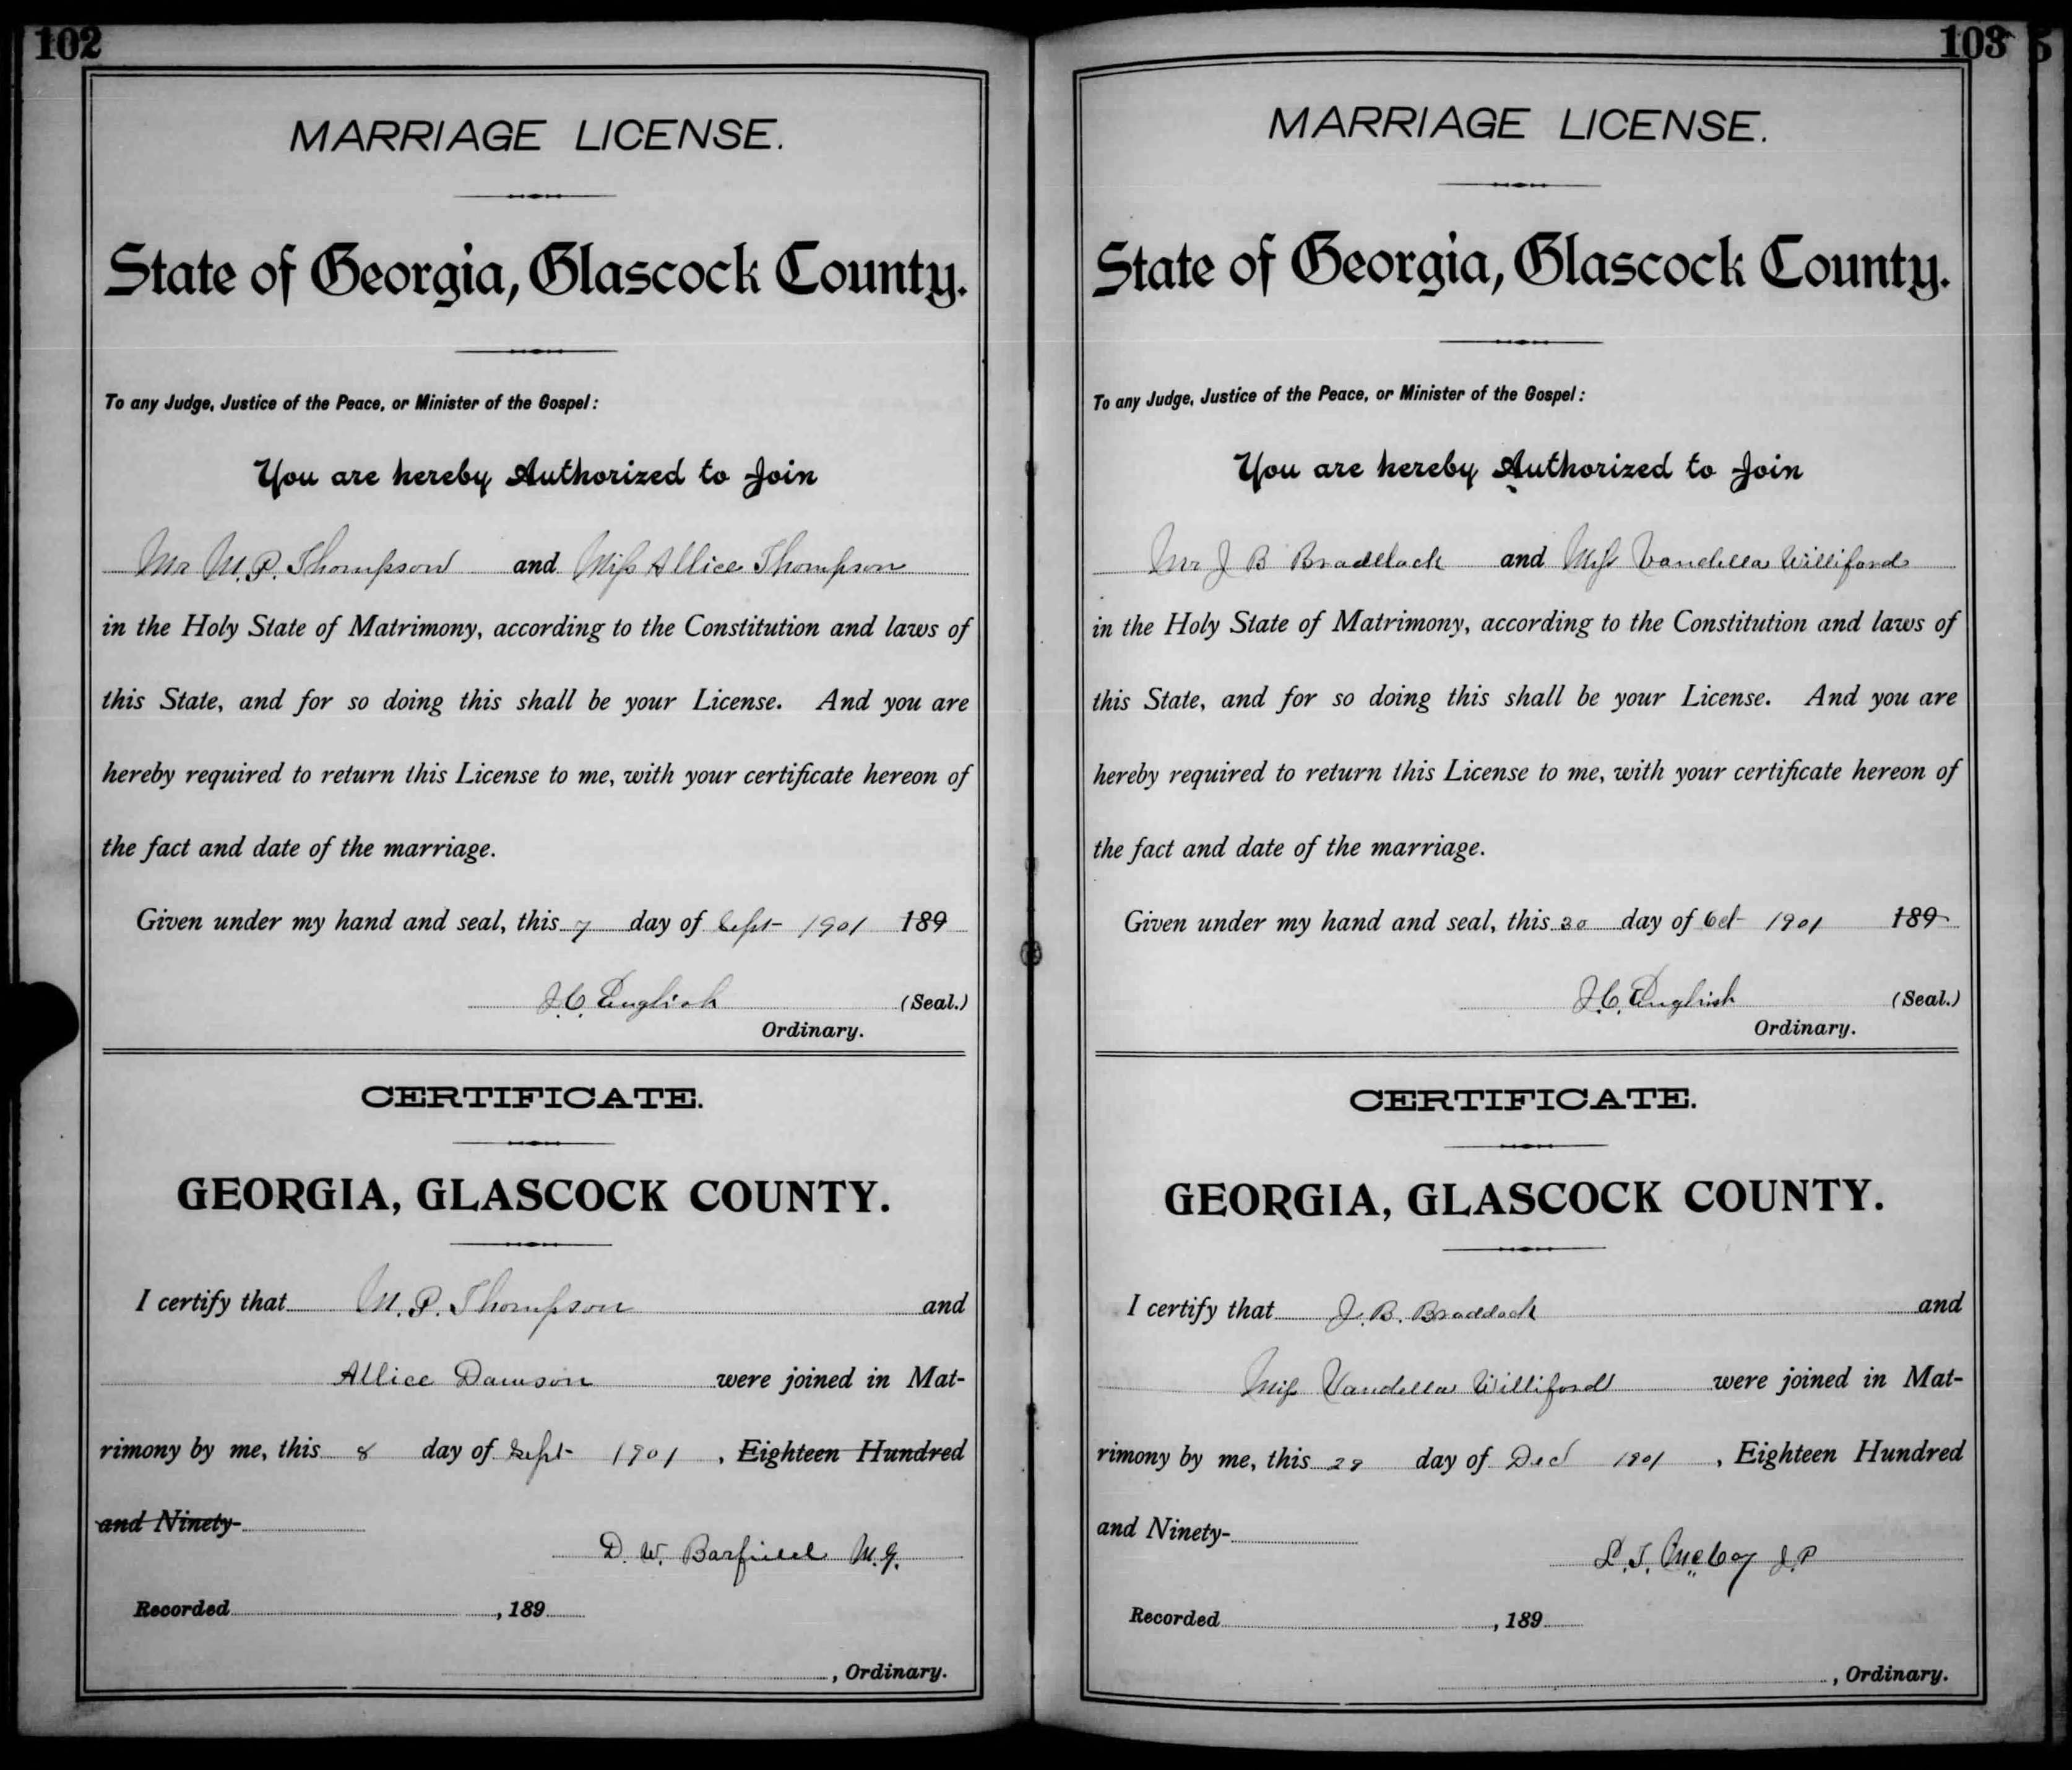 102
MARRIAGE LICENSE.
State of Georgia, Glascock County.
To any Judge, Justice of the Peace, or Minister of the Gospel:
You are hereby Authorized to Join
Mr M. P. Thompson and Miss Allice Thompson
in the Holy State of Matrimony, according to the Constitution and laws of
this State, and for so doing this shall be your License. And you are
hereby required to return this License to me, with your certificate hereon of
the fact and date of the marriage.
Given under my hand and seal, this 7 day of Sept 1901 189
J. C. English (Seal.)
Ordinary.
CERTIFICATE.
GEORGIA, GLASCOCK COUNTY.
I certify that M. P. Thompson and
Allice Dawson were joined in Mat-
rimony by me, this 8 day of Sept 1901, Eighteen Hundred
and Ninety-
D. W. Barfield M.G.
Recorded , 189
, Ordinary.
103
MARRIAGE LICENSE.
State of Georgia, Glascock County.
To any Judge, Justice of the Peace, or Minister of the Gospel:
You are hereby Authorized to Join
Mr J B Braddock and Miss Vandella Williford
in the Holy State of Matrimony, according to the Constitution and laws of
this State, and for so doing this shall be your License. And you are
hereby required to return this License to me, with your certificate hereon of
the fact and date of the marriage.
Given under my hand and seal, this 30 day of Oct 1901 189
J. C. English (Seal.)
Ordinary.
CERTIFICATE.
GEORGIA, GLASCOCK COUNTY.
I certify that J. B. Braddock and
Miss Vandella Williford were joined in Mat-
rimony by me, this day of Dec 1901, Eighteen Hundred
and Ninety-
J.P
Recorded , 189
, Ordinary.
5